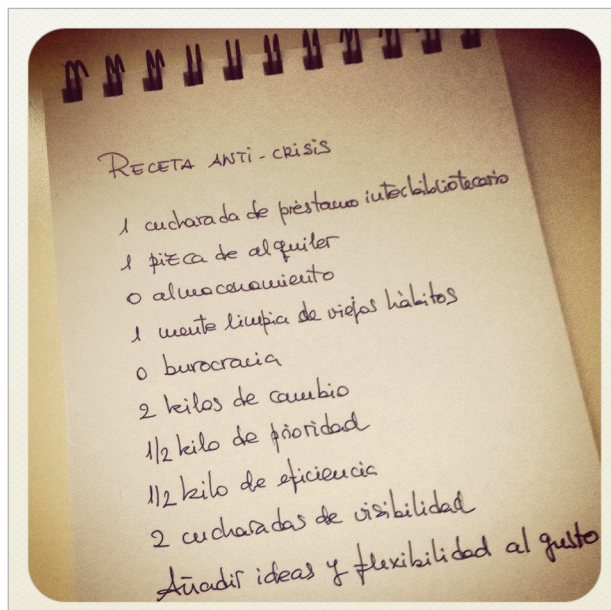 RECETA ANTI-CRISIS
1 cucharada de préstamo interbibliotecario
1 pizca de alquiler
0 almacenamiento
1 mente limpia de viejos hábitos
0 burocracia
2 kilos de cambio
1/2 kilo de prioridad
1/2 kilo de eficiencia
2 cucharadas de visibilidad
Añadir ideas y flexibilidad al gusto